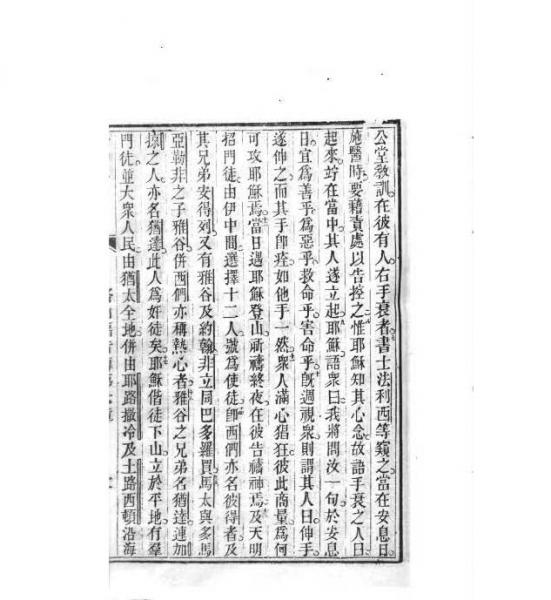 公堂教訓在彼有人右手衰者書士法利西等窺之當在安息日
施醫時要藉責處以告控之惟耶穌知其心念故語手衰之人曰
起來竚在當中其人遂立起耶穌語眾曰我將問汝一句於安息
日宜為善乎為惡乎救命乎害命乎既週視眾則謂其人曰伸手
遂伸之而其手卽痊如他手一然眾人滿心猖狂彼此商量為何
可攻耶穌焉當日遇耶穌登山祈禱終夜在彼告禱神焉及天明
招門徒由伊中間選擇十二人號為使徒卽西們亦名彼得者及
其兄弟安得列又有雅谷及約翰非立同巴多羅買馬太與多馬
亞勒非之子雅谷併西們亦稱熱心者雅谷之兄弟名猶達連加
掠之人亦名猶達此人為奸徒矣耶穌偕徒下山立於平地有羣
門徒並大眾人民由猶太全地併由耶路撒冷及土路西頓沿海